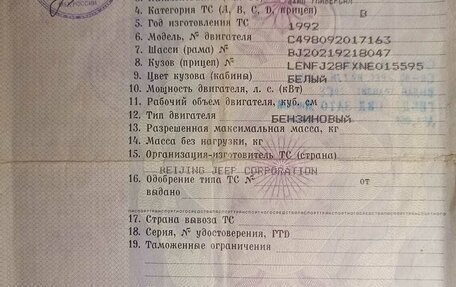 4. Категория ТС (A, B, C, D, прицеп) B
5. Год изготовления ТС 1992
6. Модель, № двигателя C498092017163
7. Шасси (рама) № BJ20219218047
8. Кузов (прицеп) № LENFJ28FXNE015595
9. Цвет кузова (кабины) БЕЛЫЙ
10. Мощность двигателя, л. с. (кВт)
11. Рабочий объем двигателя, куб. см
12. Тип двигателя БЕНЗИНОВЫЙ
13. Разрешенная максимальная масса, кг
14. Масса без нагрузки, кг
15. Организация-изготовитель ТС (страна)
BEIJING JEEP CORPORATION
16. Одобрение типа ТС № от
выдано
17. Страна вывоза ТС
18. Серия, № удостоверения, ГТД
19. Таможенные ограничения